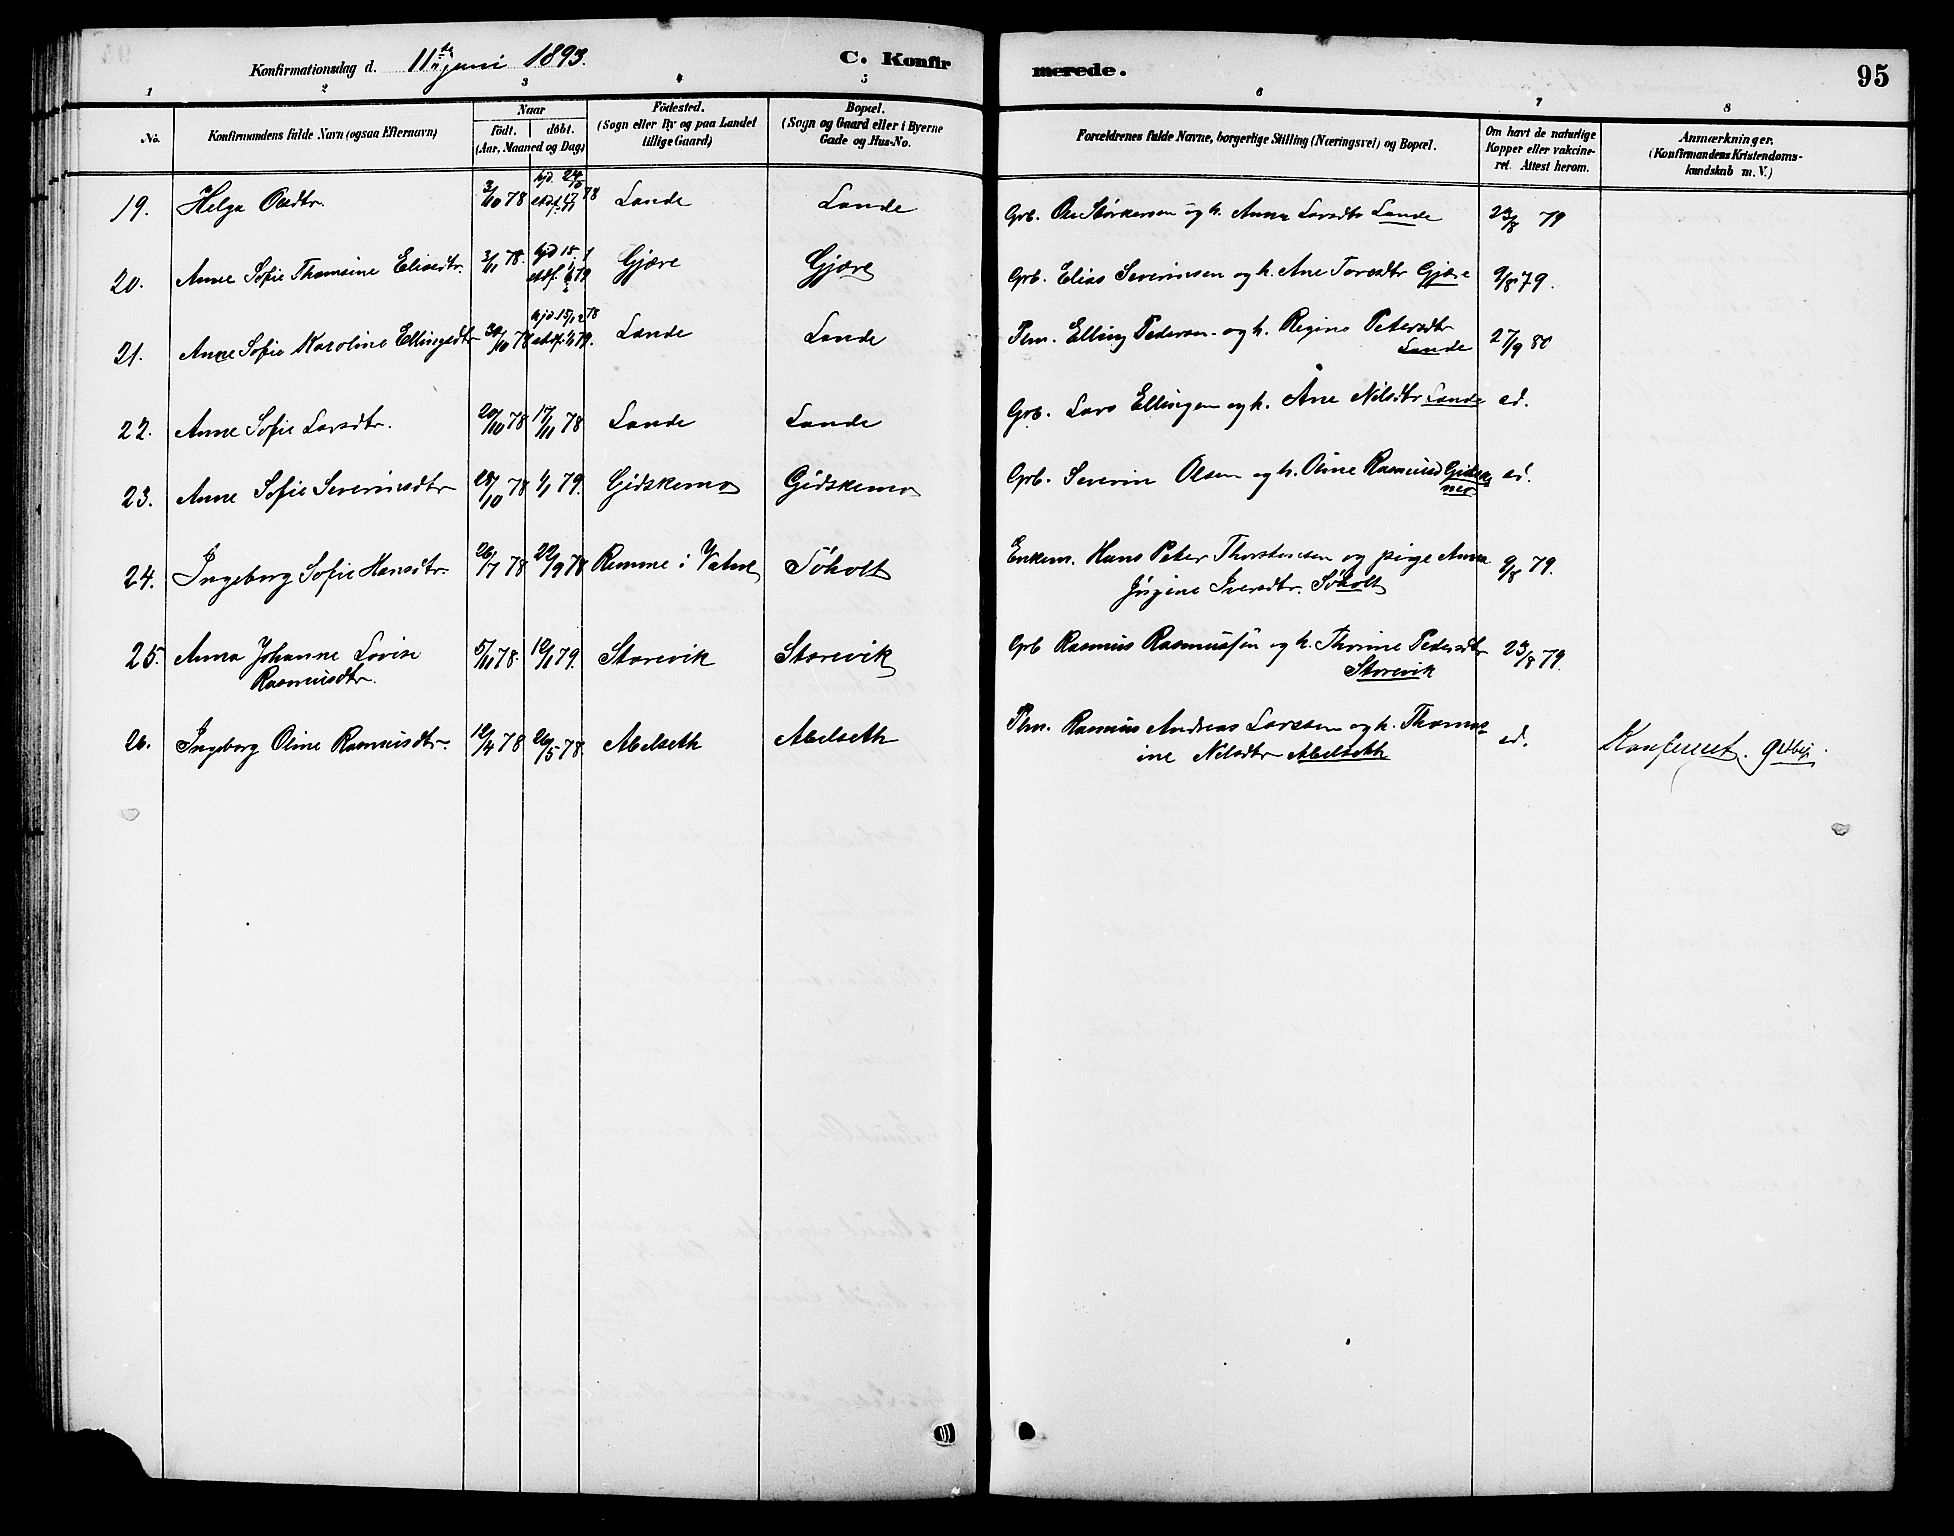 Konfirmationsdag d. 11te juni 1893.
C. Konfirmerede.
95
1 2 3 4 5 6 7 8
No.
Konfirmandens fulde Navn (ogsaa Efternavn)
Naar
födt. döbt.
(Aar, Maaned og Dag)
Födested.
(Sogn eller By og paa Landet
tillige Gaard)
Bopæl.
(Sogn og Gaard eller i Byerne
Gade og Hus-No.
Forældrenes fulde Navne, borgerlige Stilling (Næringsvei) og Bopæl.
Om havt de naturlige
Kopper eller vakcine-
ret. Attest herom.
Anmærkninger.
(Konfirmandens Kristendoms-
kundskab m. V.)
19. Helga Olsdtr. 3/10 78 hjd. 24/10 stdf. 17/11 78 Lande Lande Grb. Ole Störkersen og h. Anne Larsdtr Lande 23/8 79
20. Anne Sofie Thomsine Eliasdtr. 3/11 78. Gjære Gjære Grb. Elias Severinsen og h. Ane Toresdtr Gjære 9/8 79.
21. Anne Sofie Karoline Ellingsdtr 30/10 78 hjd 15/12 78 stdf. 1/1 79. Lande Lande Plm. Elling Pedersen og h. Regine Petersdtr
Lande 27/9 80
22. Anne Sofie Larsdtr. 20/10 78 17/11 78 Lande Lande Grb. Lars Ellingsen og h. Ane Nilsdtr Lande ed.
23. Anne Sofie Severinsdtr 28/10 78 1/1 79. Gidskemo Gidskemo Grb. Severin Olsen og h. Oline Rasmusd Gidske
mo ed.
24. Ingeborg Sofie Hansdtr. 26/7 78 22/9 78 Remme i Vatne Søholt Enkem. Hans Peter Thorstensen og pige Anna
Jørgine Iversdtr. Søholt 9/8 79.
25. Anna Johanne Lovise
Rasmusdtr. 5/11 78. 12/1 79. Storevik Storevik Grb Rasmus Rasmussen og h. Thorine Pedersdtr
Storevik 23/8 79.
26. Ingeborg Oline Rasmusdtr. 12/4 78 26/5 78. Abelseth Abelseth Plm. Rasmus Andreas Larssen og h. Thomas-
ine Nilsdtr Abelseth ed.